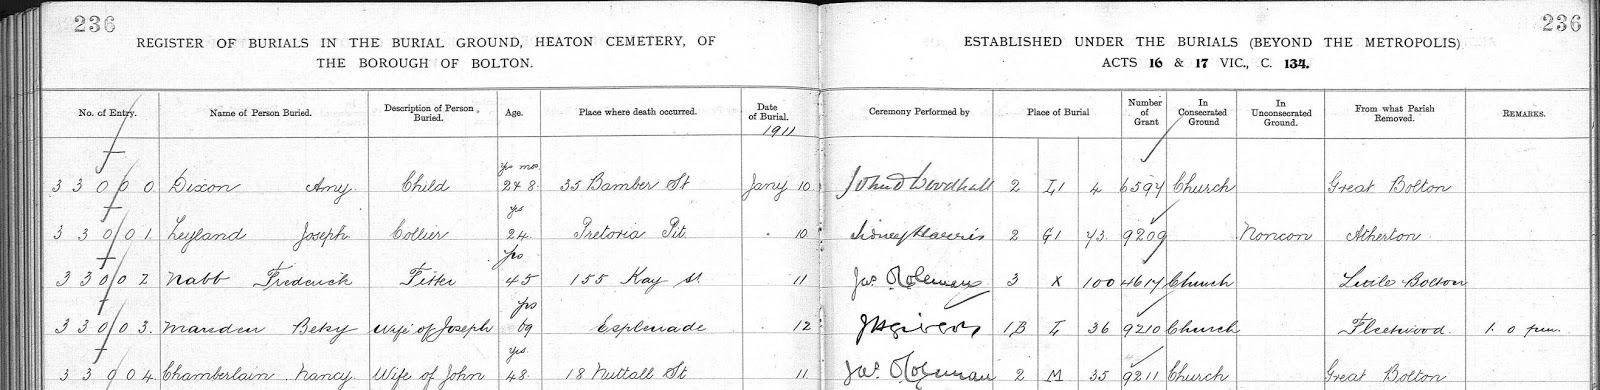 236 236
REGISTER OF BURIALS IN THE BURIAL GROUND, HEATON CEMETERY, OF
THE BOROUGH OF BOLTON.
ESTABLISHED UNDER THE BURIALS (BEYOND THE METROPOLIS)
ACTS 16 & 17 VIC., C. 134.
No. of Entry. Name of Person Buried. Description of Person Buried. Age. Place where death occurred. Date of Burial. 1911 Ceremony Performed by Place of Burial Number of Grant In Consecrated Ground In Unconsecrated Ground. From what Parish Removed. REMARKS.
yrs mos
33000 Dixon Amy Child 2 8 35 Bamber St Jany 10 John D Woodhall 2 I1 4 6594 Church Great Bolton
yrs
33001. Leyland Joseph Collier 24. Pretoria Pit . 10 Sidney Harris 2 G1 43. 9209 Noncon Atherton
yrs
33002 Nabb Frederick Fitter 45 155 Kay St 11 Jas. Coleman 3 X 100 4617 Church Little Bolton
yrs
33003. Marsden Betsy Wife of Joseph 69 Esplenade . 12 1B L 36 9210 Church Fleetwood. 1. 0 pm.
yrs.
33004. Chamberlain Nancy Wife of John 48. 18 Nuttall St 11 Jas. Coleman 2 M 35 9211 Church Great Bolton